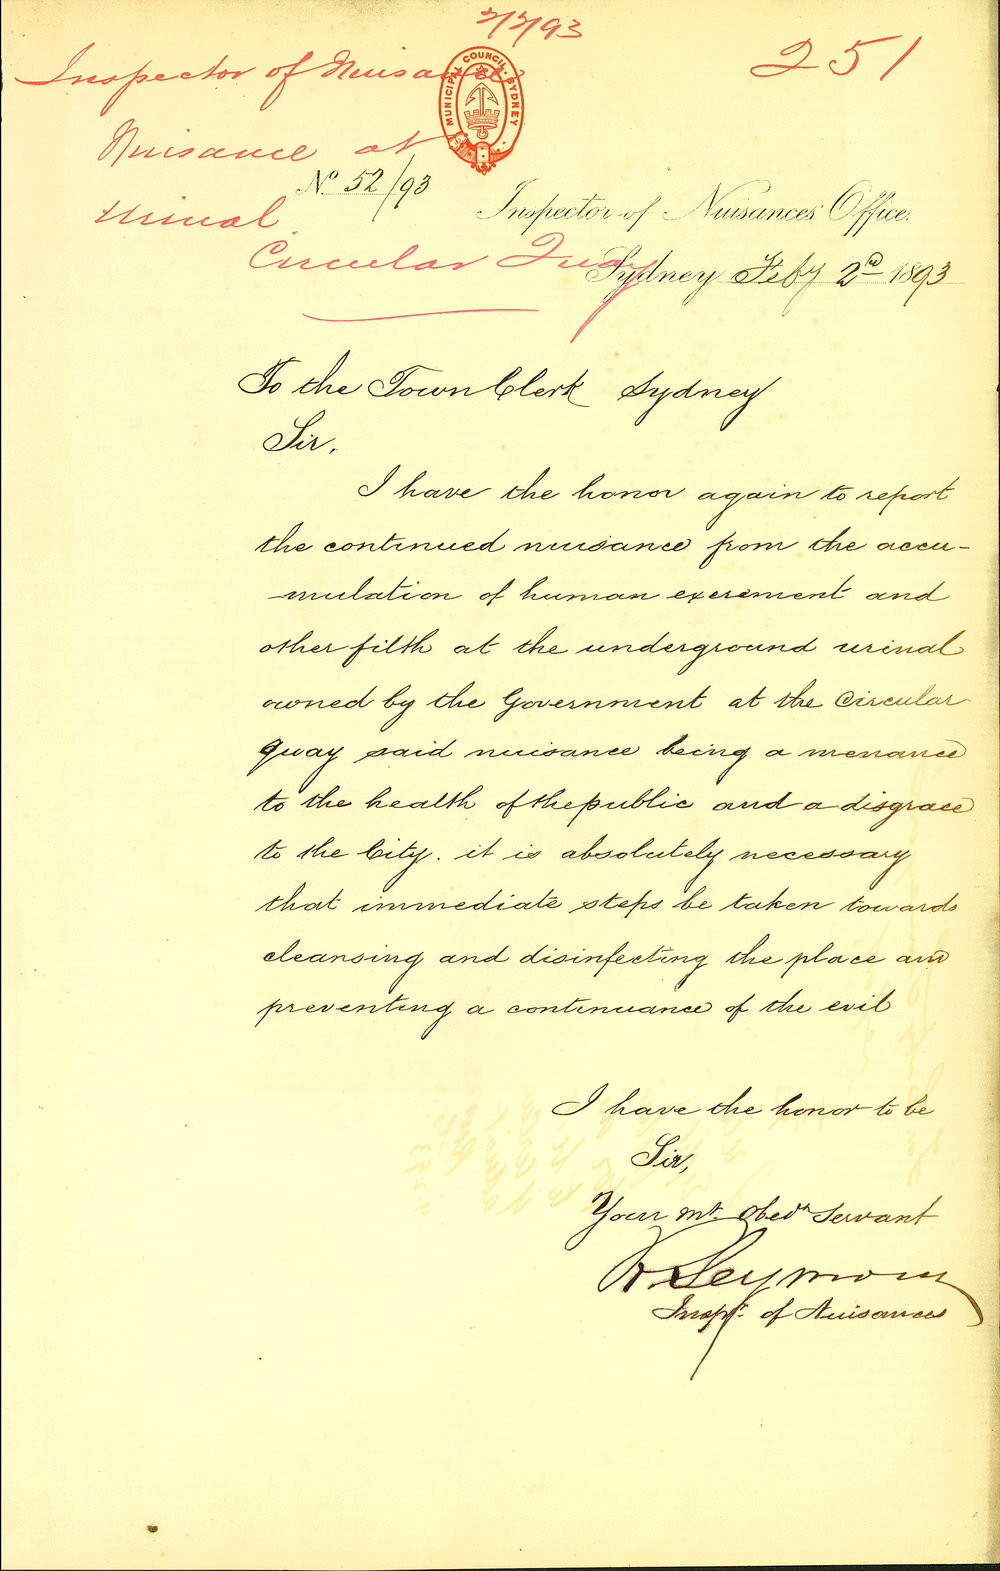 2/2/93
251
Inspector of Nuisances
Nuisance at
Urinal
Circular Quay
MUNICIPAL COUNCIL. SYDNEY
No. 52/93
Inspector of Nuisances Office.
Sydney Feby 2nd 1893
To the Town Clerk Sydney
Sir,
I have the honor again to report
the continued nuisance from the accu-
-mulation of human excrement and
other filth at the underground urinal
owned by the Government at the Circular
Quay said nuisance being a menance
to the health of the public and a disgrace
to the City. it is absolutely necessary
that immediate steps be taken towards
cleansing and disinfecting the place and
preventing a continuance of the evil
I have the honor to be
Sir,
Your Mt. Obedt Servant
Seymour
Inspr. of Nuisances